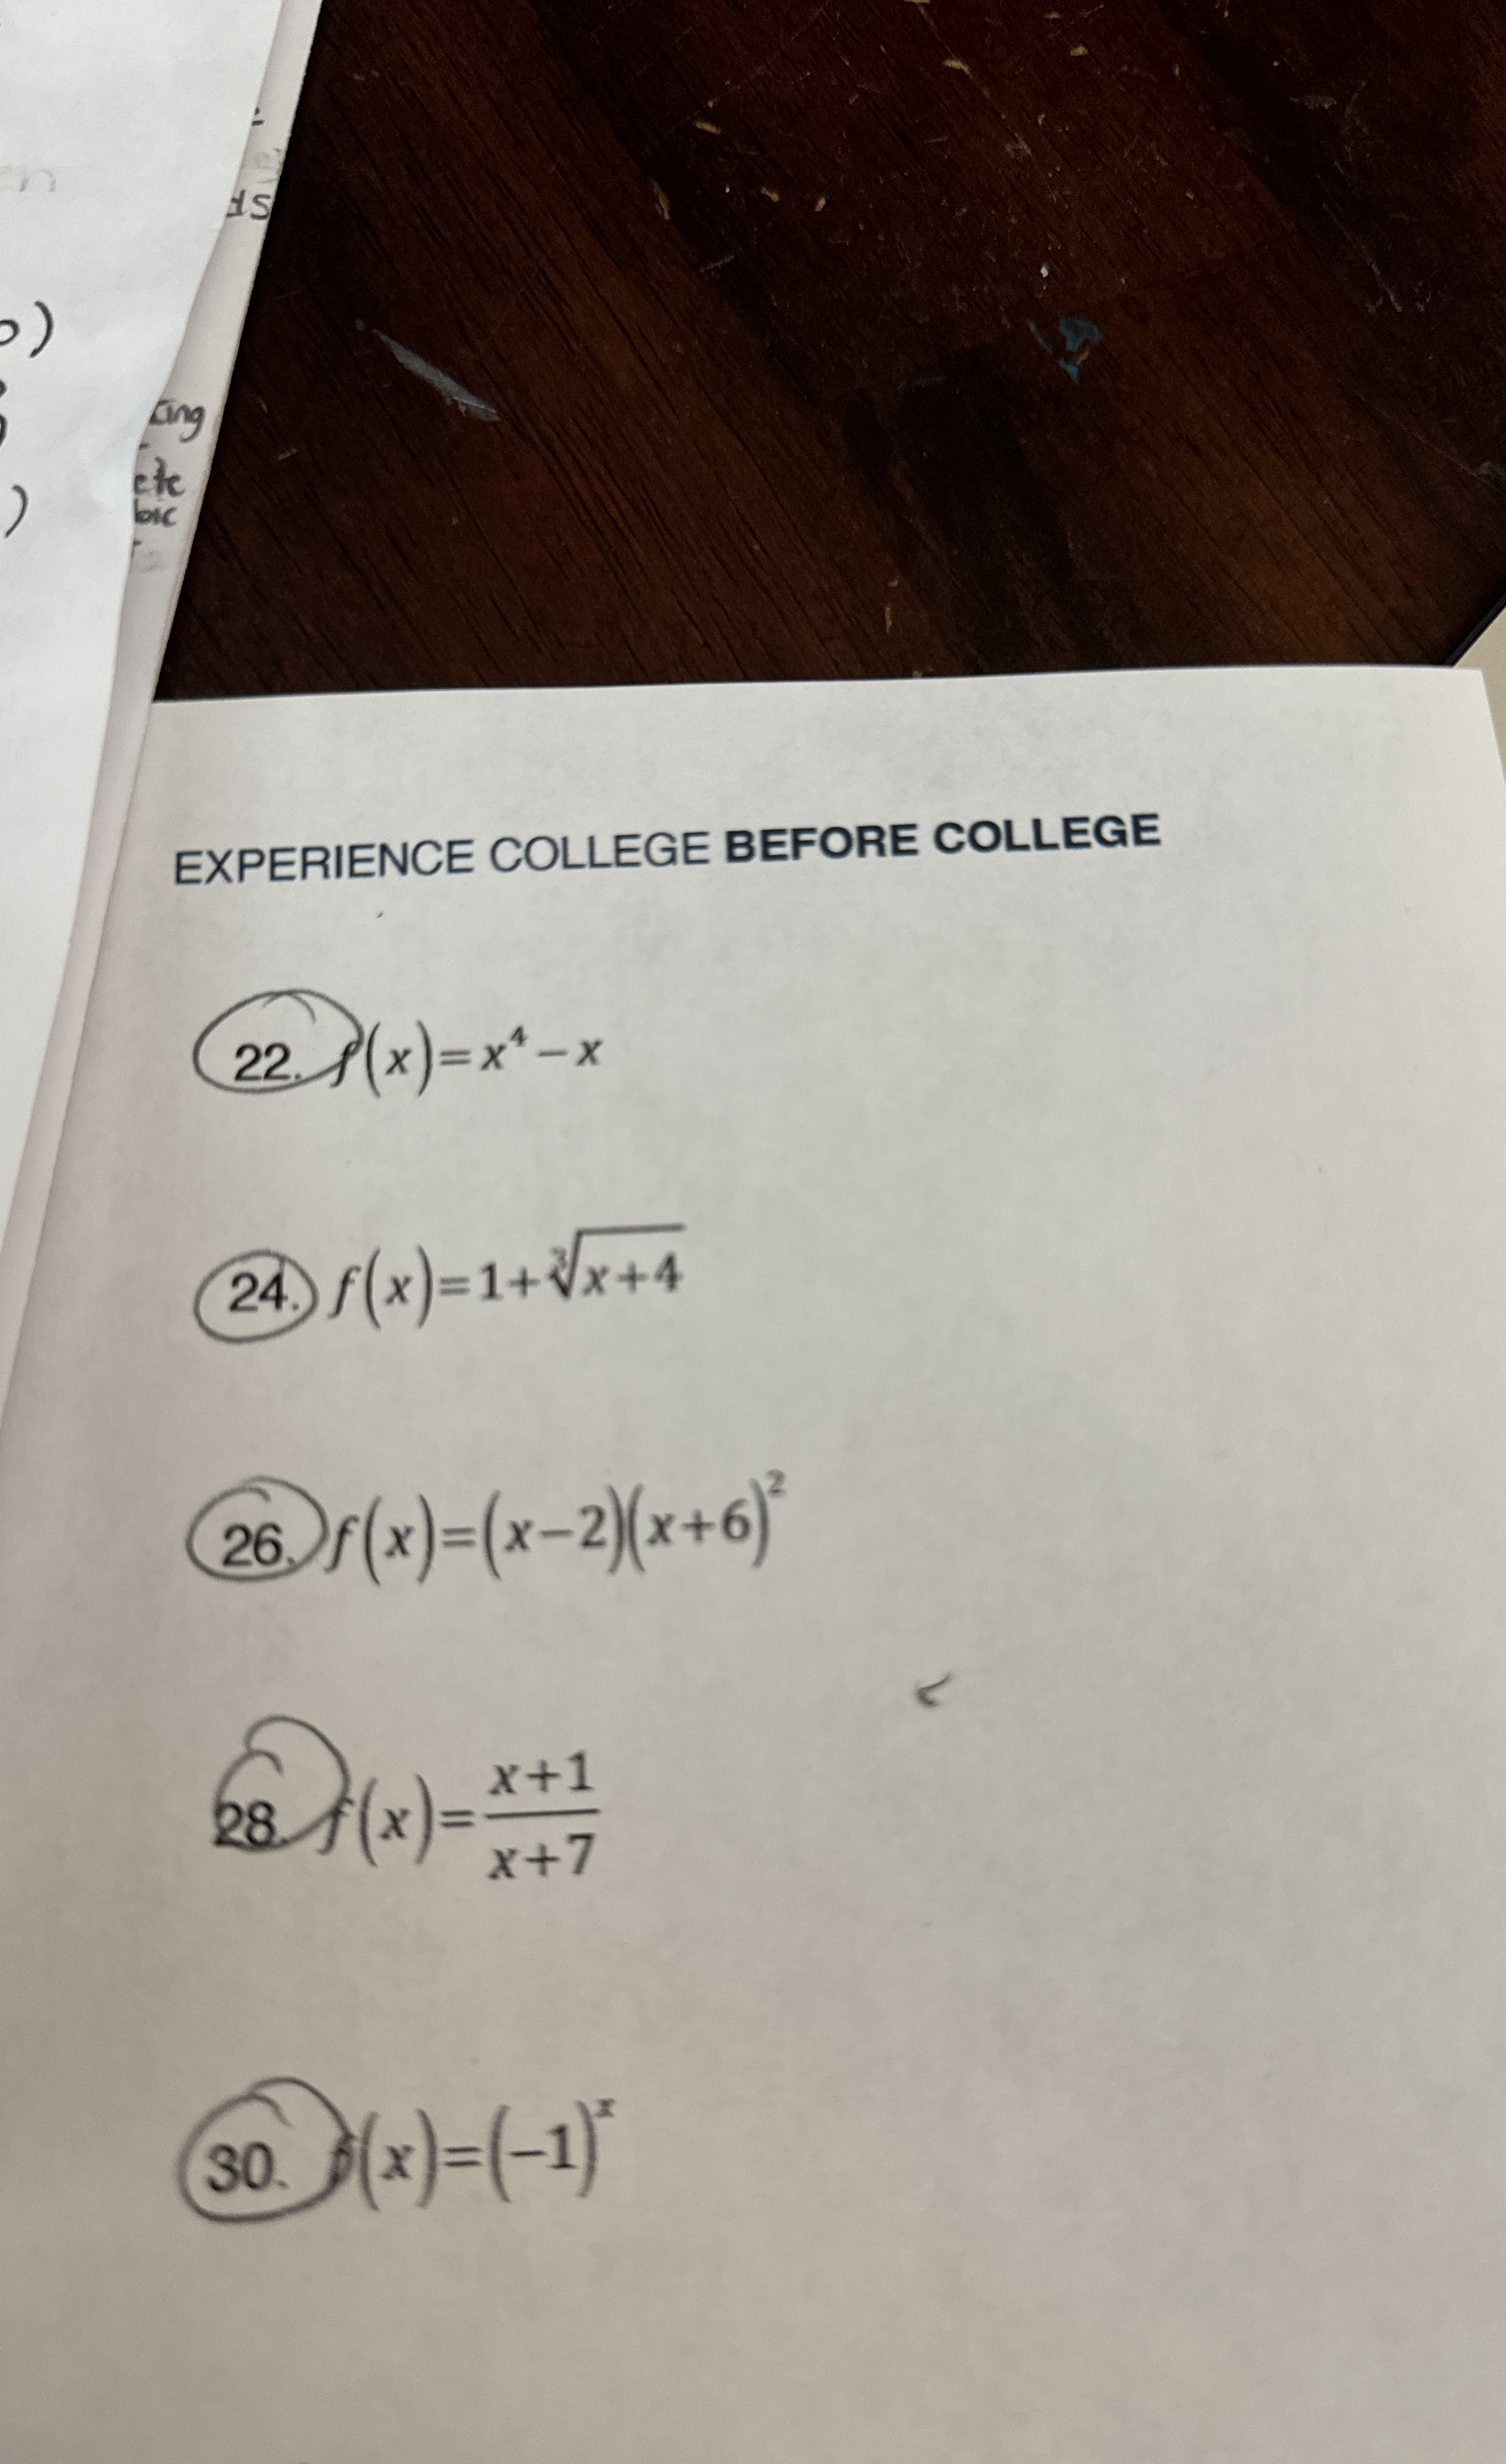 en
ds
o)
)
ting
etc
bic
EXPERIENCE COLLEGE BEFORE COLLEGE
22. f(x)=x⁴−x
24. f(x)=1+∛(x+4)
26. f(x)=(x−2)(x+6)²
28. f(x)=(x+1)/(x+7)
30. f(x)=(−1)ˣ